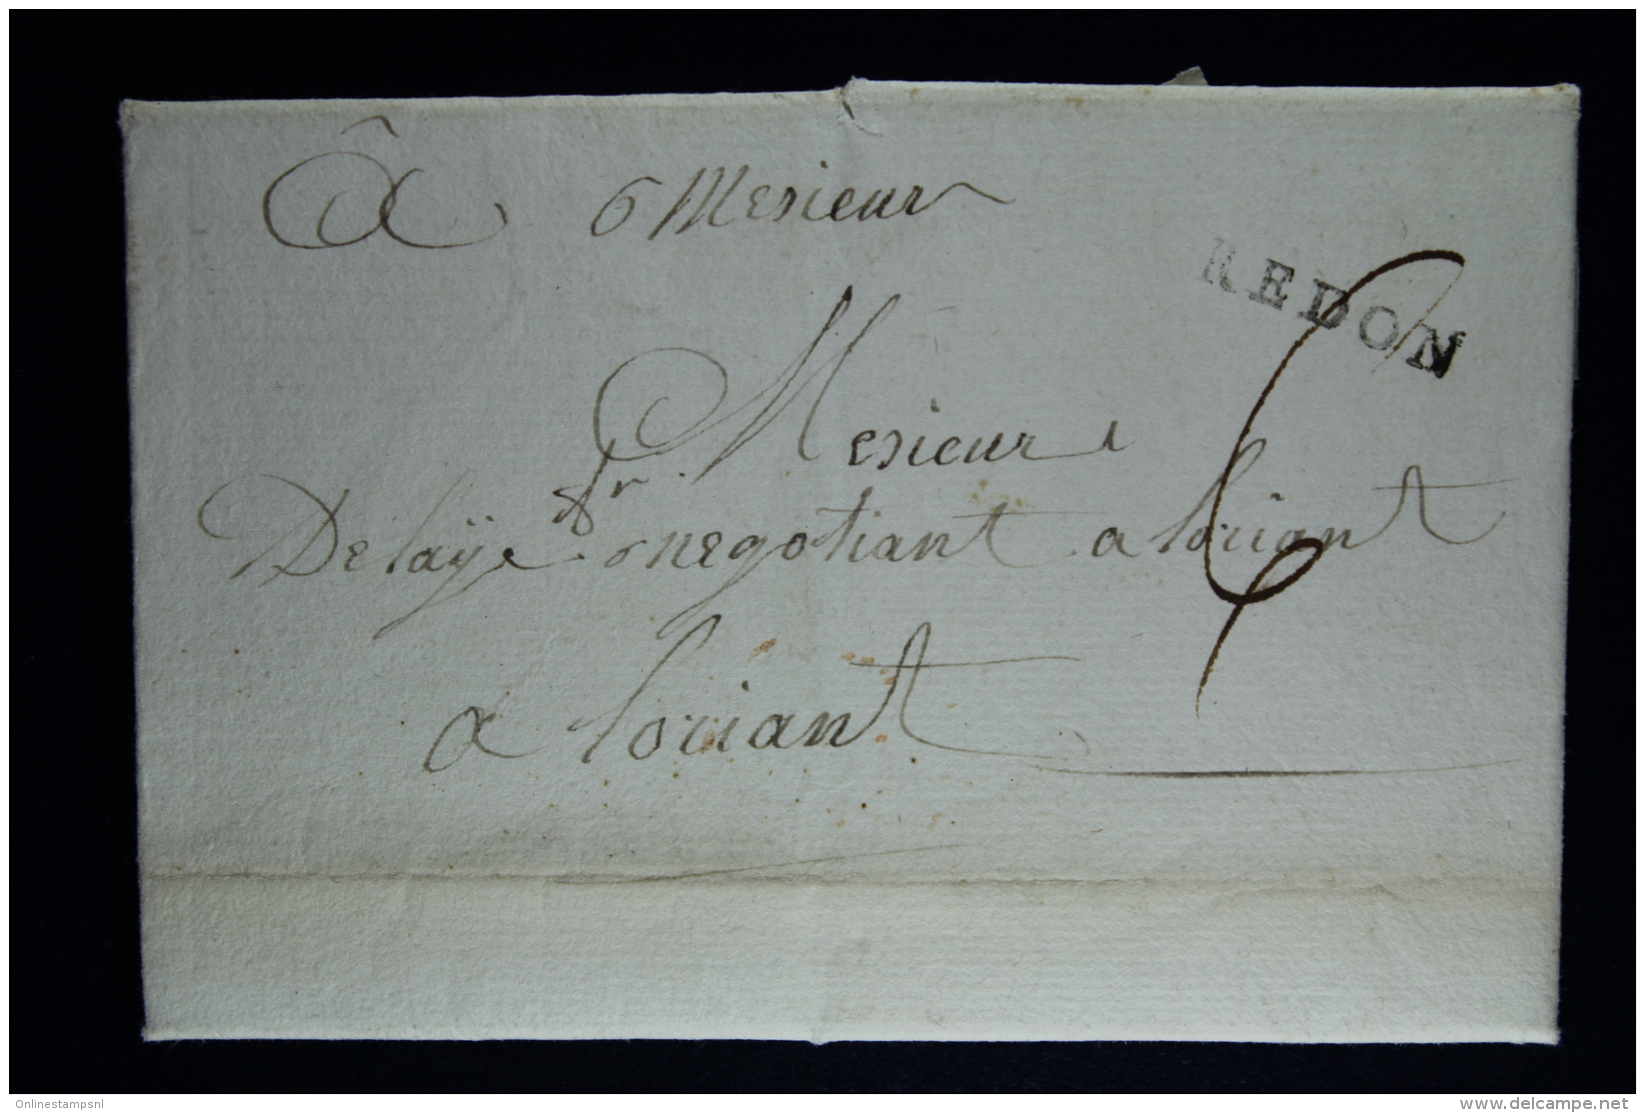 A Mesieur
REDON
6
Mesieur
Delaÿe fr negotiant a loriant
a loriant
Onlinestampsnl
www.delcampe.net